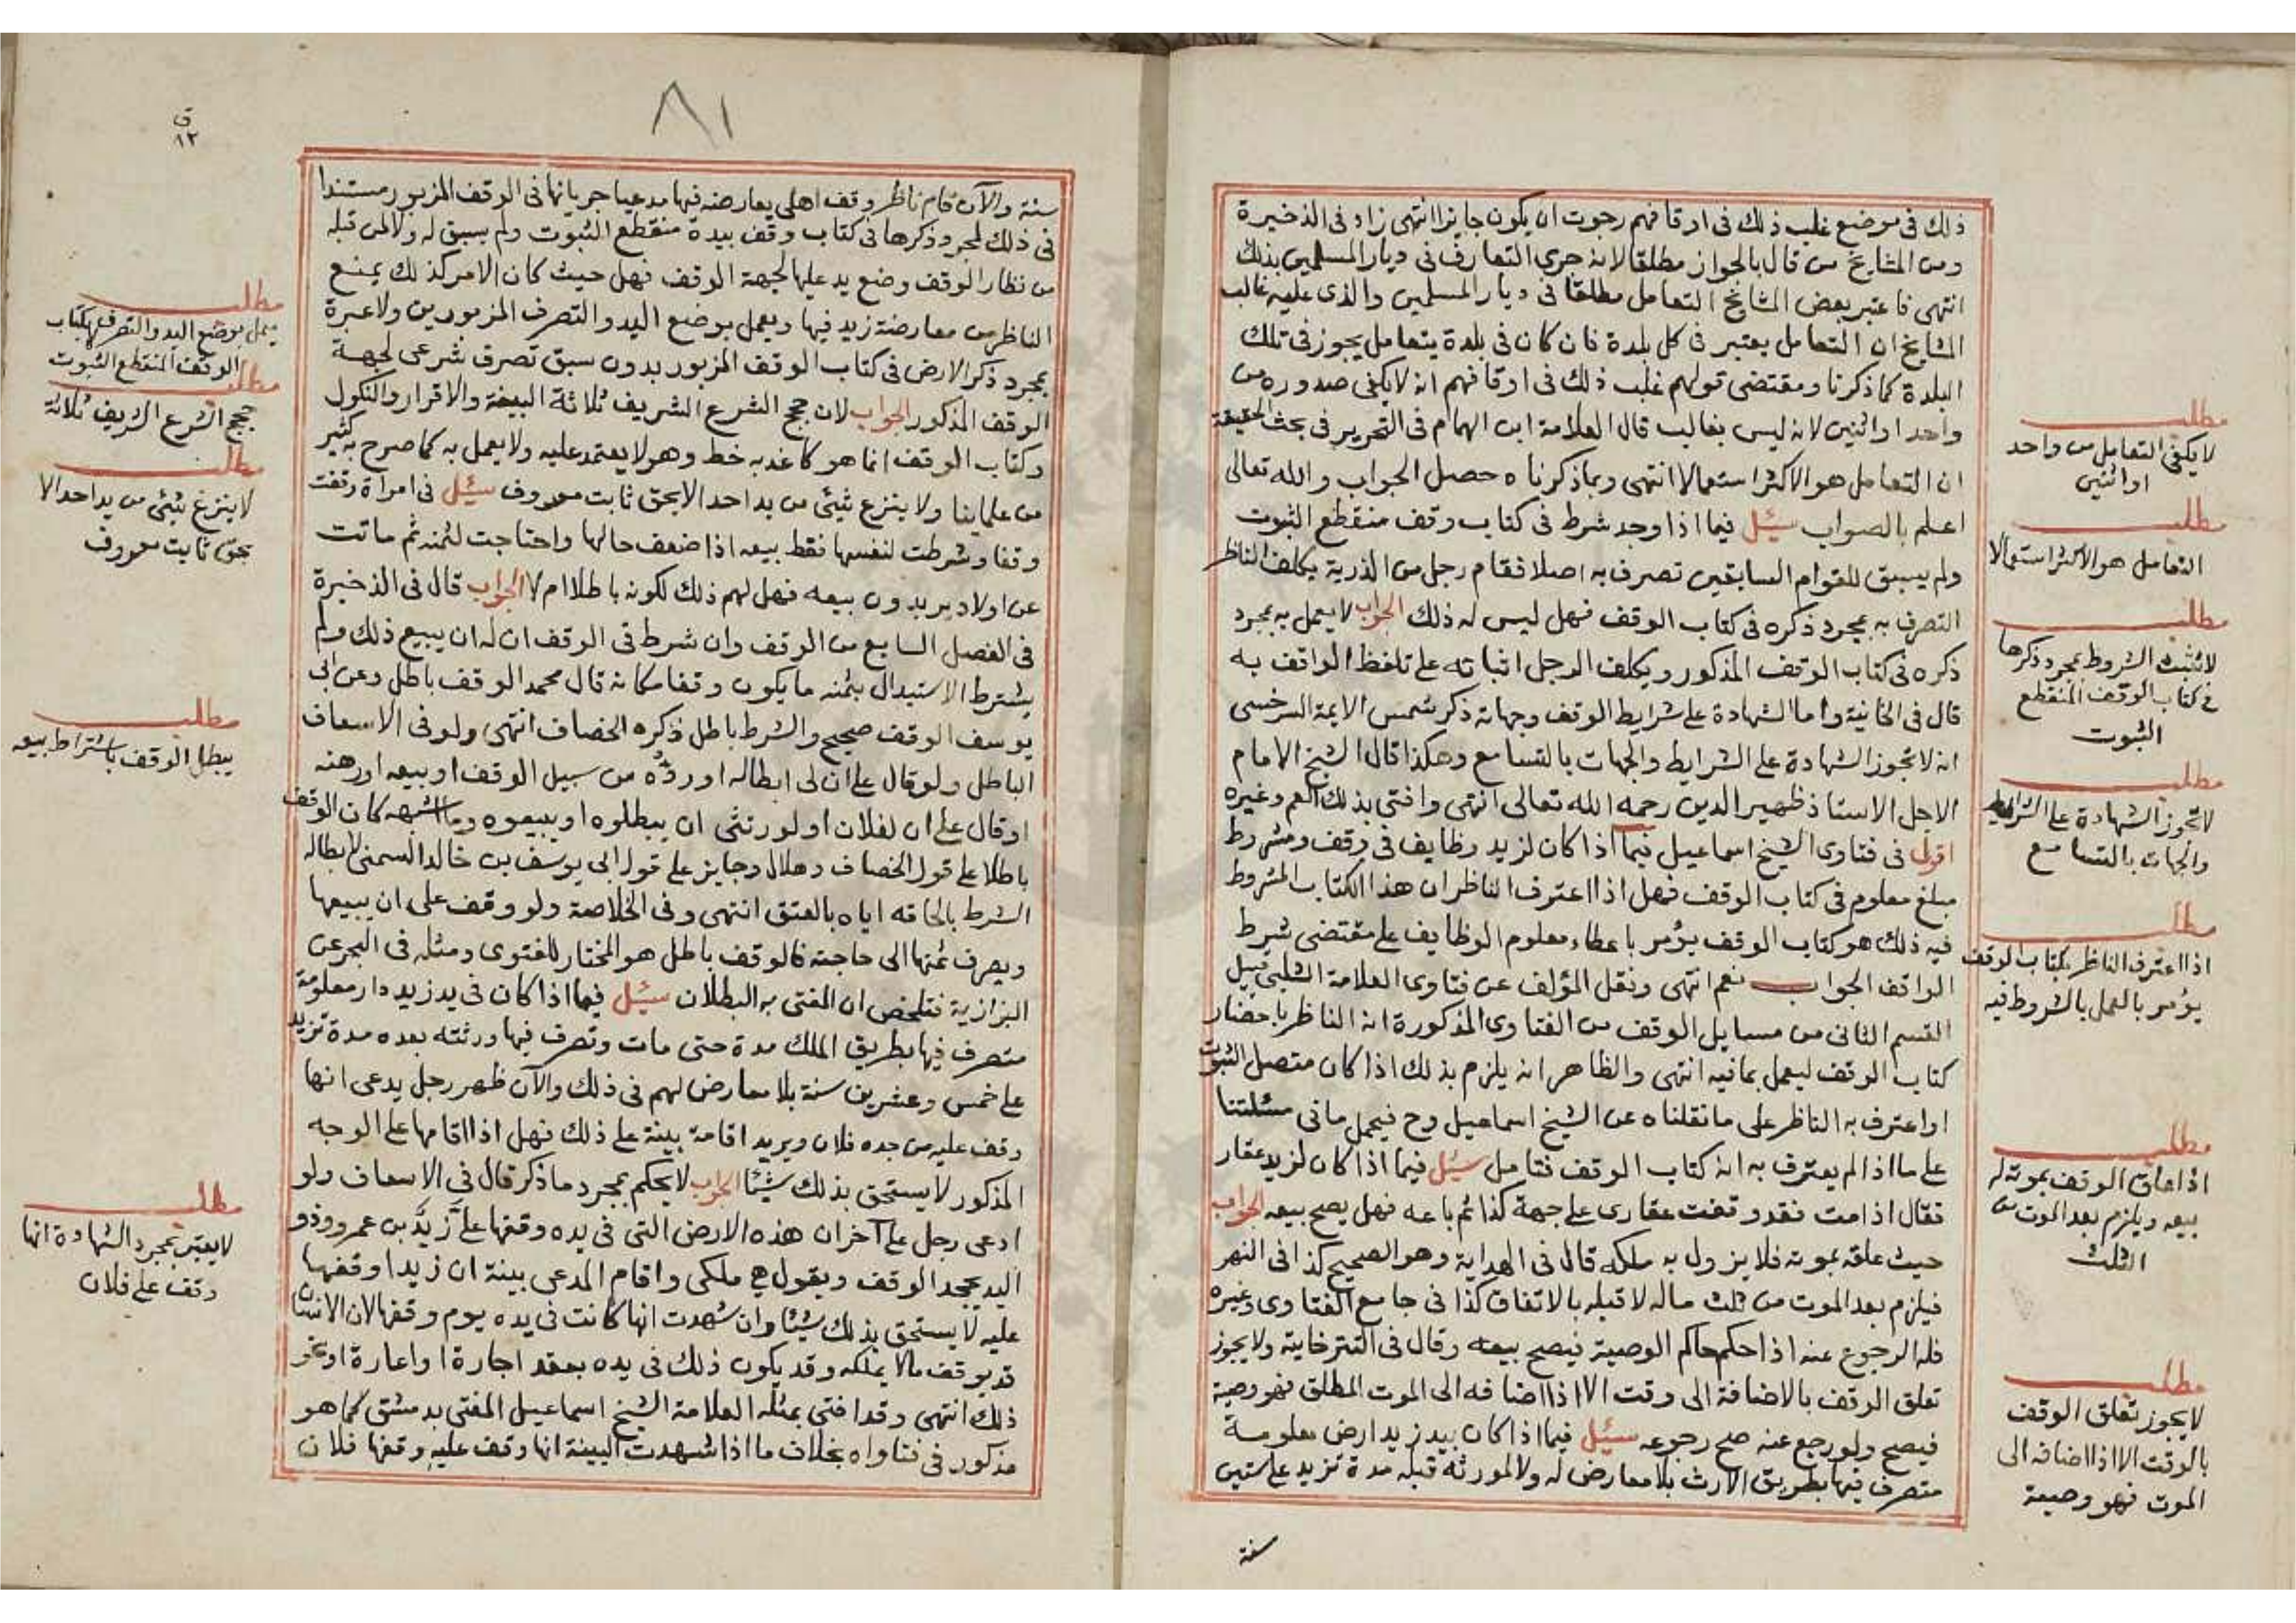 ذلك فى موضع غلب ذلك فى اوقافهم رجوت ان يكون جايزا انتهى زاد فى الذخيرة
ومن المشايخ من قال بالجواز مطلقا لانه جرى التعارف فى ديار المسلمين بذلك
انتهى فاعتبر بعض المشايخ التعامل مطلقا فى ديار المسلمين والذى عليه غالب
المشايخ ان التعامل يعتبر فى كل بلدة فان كان فى بلدة يتعامل يجوز فى تلك
البلدة كما ذكرنا ومقتضى قولهم غلب ذلك فى اوقافهم انه لا يكفى صدوره من
واحد او اثنين لانه ليس بغالب قال العلامة ابن الهمام فى التحرير فى بحث الحقيقة
ان التعامل هو الاكثر استعمالا انتهى وبما ذكرناه حصل الجواب والله تعالى
اعلم بالصواب سئل فيما اذا وجد شرط فى كتاب وقف منقطع الثبوت
ولم يسبق للقوام السابقين تصرف به اصلا فقام رجل من الذرية يكلف الناظر
التصرف به بمجرد ذكره فى كتاب الوقف فهل ليس له ذلك الجواب لا يعمل به بمجرد
ذكره فى كتاب الوقف المذكور ويكلف الرجل اثباته على تلفظ الواقف به
قال فى الخانية واما الشهادة على شرايط الوقف وجهاته ذكر شمس الايمة السرخسى
انه لا تجوز الشهادة على الشرايط والجهات بالتسامع وهكذا قال الشيخ الامام
الاجل الاستاذ ظهير الدين رحمه الله تعالى انتهى وافتى بذلك العم وغيره
اقول فى فتاوى الشيخ اسماعيل فيما اذا كان لزيد وظايف فى وقف ومشروط
مبلغ معلوم فى كتاب الوقف فهل اذا اعترف الناظر ان هذا الكتاب المشروط
فيه ذلك هو كتاب الوقف يؤمر باعطاء معلوم الوظايف على مقتضى شرط
الواقف الجواب نعم انتهى ونقل المؤلف عن فتاوى العلامة الشلبى قبيل
القسم الثانى من مسايل الوقف من الفتاوى المذكورة انه الناظر باحضار
كتاب الوقف ليعمل بما فيه انتهى والظاهر انه يلزم بذلك اذا كان متصل الثبوت
او اعترف به الناظر على ما نقلناه عن الشيخ اسماعيل وح فيحمل ما فى مسئلتنا
على ما اذا لم يعترف به انه كتاب الوقف فتامل سئل فيما اذا كان لزيد عقار
فقال اذا مت فقد وقفت عقارى على جهة كذا ثم باعه فهل يصح بيعه الجواب
حيث علقه بموته فلا يزول به ملكه قال فى الهداية وهو الصحيح كذا فى النهر
فيلزم بعد الموت من ثلث ماله لا قبله بالاتفاق كذا فى جامع الفتاوى وغيره
فله الرجوع عنه اذا حكمه حاكم الوصية فيصح بيعه وقال فى التترخانية ولا يجوز
تعلق الوقف بالاضافة الى وقت الا اذا اضافه الى الموت المطلق فهو وصية
فيصح ولو رجع عنه صح رجوعه سئل فيما اذا كان بيد زيد ارض معلومة
متصرف فيها بطريق الارث بلا معارض له ولا لمورثه قبله مدة تزيد على ستين
سنة
مطلب
لا يكفى التعامل من واحد
او اثنين
مطلب
التعامل هو الاكثر استعمالا
مطلب
لا تثبت الشروط بمجرد ذكرها
فى كتاب الوقف المنقطع
الثبوت
مطلب
لا تجوز الشهادة على الشرايط
والجهات بالتسامع
مطلب
اذا اعترف الناظر بكتاب الوقف
يؤمر بالعمل بالشروط فيه
مطلب
اذا علق الوقف بموته له
بيعه ويلزم بعد الموت من
الثلث
مطلب
لا يجوز تعلق الوقف
بالوقت الا اذا اضافه الى
الموت فهو وصية
٨١
ق
١٢
سنة والآن قام ناظر وقف اهلى يعارضه فيها مدعيا جريانها فى الوقف المزبور مستندا
فى ذلك لمجرد ذكرها فى كتاب وقف بيده منقطع الثبوت ولم يسبق له ولا لمن قبله
من نظار الوقف وضع يد عليها لجهة الوقف فهل حيث كان الامر كذلك يمنع
الناظر من معارضة زيد فيها ويعمل بوضع اليد والتصرف المزبورين ولا عبرة
بمجرد ذكر الارض فى كتاب الوقف المزبور بدون سبق تصرف شرعى لجهة
الوقف المذكور الجواب لان حجج الشرع الشريف ثلاثة البينة والاقرار والنكول
وكتاب الوقف انما هو كاغد به خط وهو لا يعتمد عليه ولا يعمل به كما صرح به كثير
من علماينا ولا ينزع شئ من يد احد الا بحق ثابت معروف سئل فى امراة وقفت
وقفا وشرطت لنفسها فقط بيعه اذا ضعف حالها واحتاجت لثمنه ثم ماتت
عن اولاد يريدون بيعه فهل لهم ذلك لكونه باطلا ام لا الجواب قال فى الذخيرة
فى الفصل السابع من الوقف وان شرط فى الوقف ان له ان يبيع ذلك ولم
يشترط الاستبدال بثمنه ما يكون وقفا مكانه قال محمد الوقف باطل وعن ابى
يوسف الوقف صحيح والشرط باطل ذكره الخصاف انتهى ولو فى الاسعاف
الباطل ولو قال على ان لى ابطاله او رده من سبيل الوقف او بيعه او رهنه
او قال على ان لفلان او لورثتى ان يبطلوه او يبيعوه وما اشبهه كان الوقف
باطلا على قول الخصاف وهلال وجايز على قول ابى يوسف بن خالد السمتى لابطاله
الشرط بالحاقه اياه بالعتق انتهى وفى الخلاصة ولو وقف على ان يبيعها
ويصرف ثمنها الى حاجته فالوقف باطل هو المختار للفتوى ومثله فى البحر عن
البزازية فتلخص ان المفتى به البطلان سئل فيما اذا كان فى يد زيد دار معلومة
متصرف فيها بطريق الملك مدة حتى مات وتصرف فيها ورثته بعده مدة تزيد
على خمس وعشرين سنة بلا معارض لهم فى ذلك والآن ظهر رجل يدعى انها
وقف عليه من جده فلان ويريد اقامة بينة على ذلك فهل اذا اقامها على الوجه
المذكور لا يستحق بذلك شيئا الجواب لا يحكم بمجرد ما ذكر قال فى الاسعاف ولو
ادعى رجل على آخر ان هذه الارض التى فى يده وقفها على زيد بن عمرو وذو
اليد يجحد الوقف ويقول هى ملكى واقام المدعى بينة ان زيدا وقفها
عليه لا يستحق بذلك شيئا وان شهدت انها كانت فى يده يوم وقفها لان الانسان
قد يوقف مالا يملكه وقد يكون ذلك فى يده بعقد اجارة او اعارة او نحو
ذلك انتهى وقد افتى بمثله العلامة الشيخ اسماعيل المفتى بدمشق كما هو
مذكور فى فتاواه بخلاف ما اذا شهدت البينة انها وقف عليه وقفها فلان
مطلب
يعمل بوضع اليد والتصرف لا بكتاب
الوقف المنقطع الثبوت
مطلب
حجج الشرع الشريف ثلاثة
مطلب
لا ينزع شئ من يد احد الا
بحق ثابت معروف
مطلب
يبطل الوقف باشتراط بيعه
مطلب
لا يعتبر بمجرد الشهادة انها
وقف على فلان